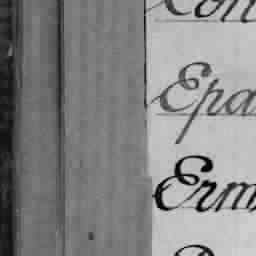 Con
Epa
Erm